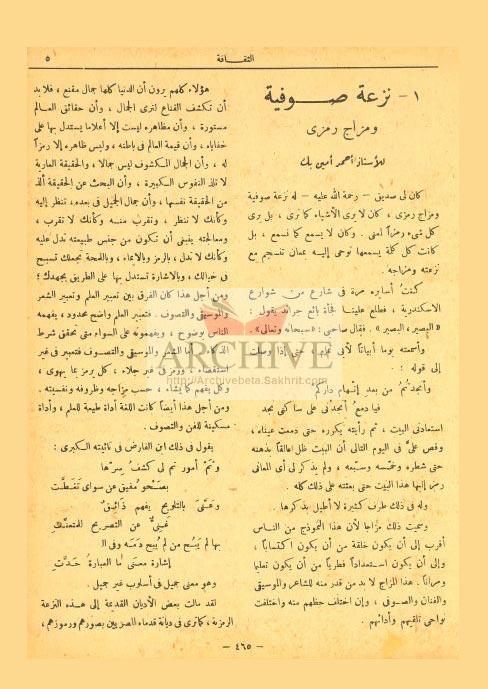 الثقافة
٥
١ - نزعة صوفية
ومزاج رمزى
للأستاذ أحمد أمين بك
كان لى صديق – رحمة الله عليه – له نزعة صوفية
ومزاج رمزى، كان لا يرى الأشياء كما نرى، بل يرى
كل شىء رمزاً لمعنى. وكان لا يسمع كما نسمع، بل
كانت كل كلمة يسمعها توحى إليه بمعان تنسجم مع
نزعته ومزاجه.
كنت أسايره مرة فى شارع من شوارع
الاسكندرية، فطلع علينا فجأة بائع جرائد يقول:
«البصير، البصير». فقال صاحبى: «سبحانه وتعالى».
وأسمعته يوماً أبياتاً لأبى تمام، حتى إذا وصلت
إلى قوله:
وأنجدتمُ من بعد إتهام داركم
فيا دمعُ أنجدنى على ساكنى نجد
استعادنى البيت، ثم رأيته يكرره حتى دمعت عيناه،
وقص علىّ فى اليوم التالى أن البيت ظل عالقاً بذهنه
حتى شطره وخمّسه وسبّعه، ولم يذكر لى أى المعانى
رمز إليها هذا البيت حتى بعثته على ذلك كله.
وله فى ذلك طرف كثيرة لا أطيل بذكرها.
وسميت ذلك مزاجاً لأن هذا النموذج من الناس
أقرب إلى أن يكون خلقة من أن يكون اكتساباً،
وإلى أن يكون استعداداً فطرياً من أن يكون تعلما
ومراناً. هذا المزاج لا بد من قدر منه للشاعر والموسيقى
والفنان والصوفى، وإن اختلف حظهم منه واختلفت
نواحى تلقيهم وأدائهم.
هؤلاء كلهم يرون أن الدنيا كلها جمال مقنع، فلا بد
أن تكشف القناع لترى الجمال، وأن حقائق العالم
مستورة، وأن مظاهره ليست إلا أعلاما يستدل بها على
خفاياه، وأن قيمة العالم فى باطنه، وليس ظاهره إلا رمزاً
له، وأن الجمال المكشوف ليس جمالا، والحقيقة العارية
لا تلذ النفوس الكبيرة، وأن البحث عن الحقيقة ألذ
من الحقيقة نفسها، وأن جمال الجميل فى بعده، تنظر إليه
وكأنك لا تنظر، وتقرب منه وكأنك لا تقرب،
ومعالجته ينبغى أن تكون من جنس طبيعته تدل عليه
وكأنك لا تدل، بالرمز والإيماء، وباللمحة تجعلك تسبح
فى خيالك، وبالاشارة تستدل بها على الطريق بجهدك؛
ومن أجل هذا كان الفرق بين تعبير العلم وتعبير الشعر
والموسيقى والتصوف. فتعبير العلم واضح محدود، يفهمه
الناس بوضوح، ويفهمونه على السواء متى تحقق شرط
الذكاء. أما الشعر والموسيقى والتصوف فتعبير فى غير
استقصاء، ورمز فى غير جلاء، كل يرمز بما يهوى،
وكل يفهم كما يشاء، حسب مزاجه وظروفه ونفسيته.
ومن أجل هذا أيضاً كانت اللغة أداة طيعة للعلم، وأداة
مسكينة للفن والتصوف.
يقول فى ذلك ابن الفارض فى تائيته الكبرى:
وثَمَّ أمور تم لى كشفُ سِرها
بصَحْو مُفيق عن سواى تَغَطَّت
وعَنِّىَ بالتلويح يفهم ذائقٌ
غنىٌّ عن التصريح للمتعنِّتِ
بها لم يَبُح من لم يُبِح دمَه وفى الـ
إشارة معنى ما العبارة حَدَّت
وهو معنى جميل فى أسلوب غير جميل.
لقد مالت بعض الأديان القديمة إلى هذه النزعة
الرمزية، كما ترى فى ديانة قدماء المصريين بصورهم ورموزهم،
— ٤٦٥ —
ARCHIVE
http://Archivebeta.Sakhrit.com